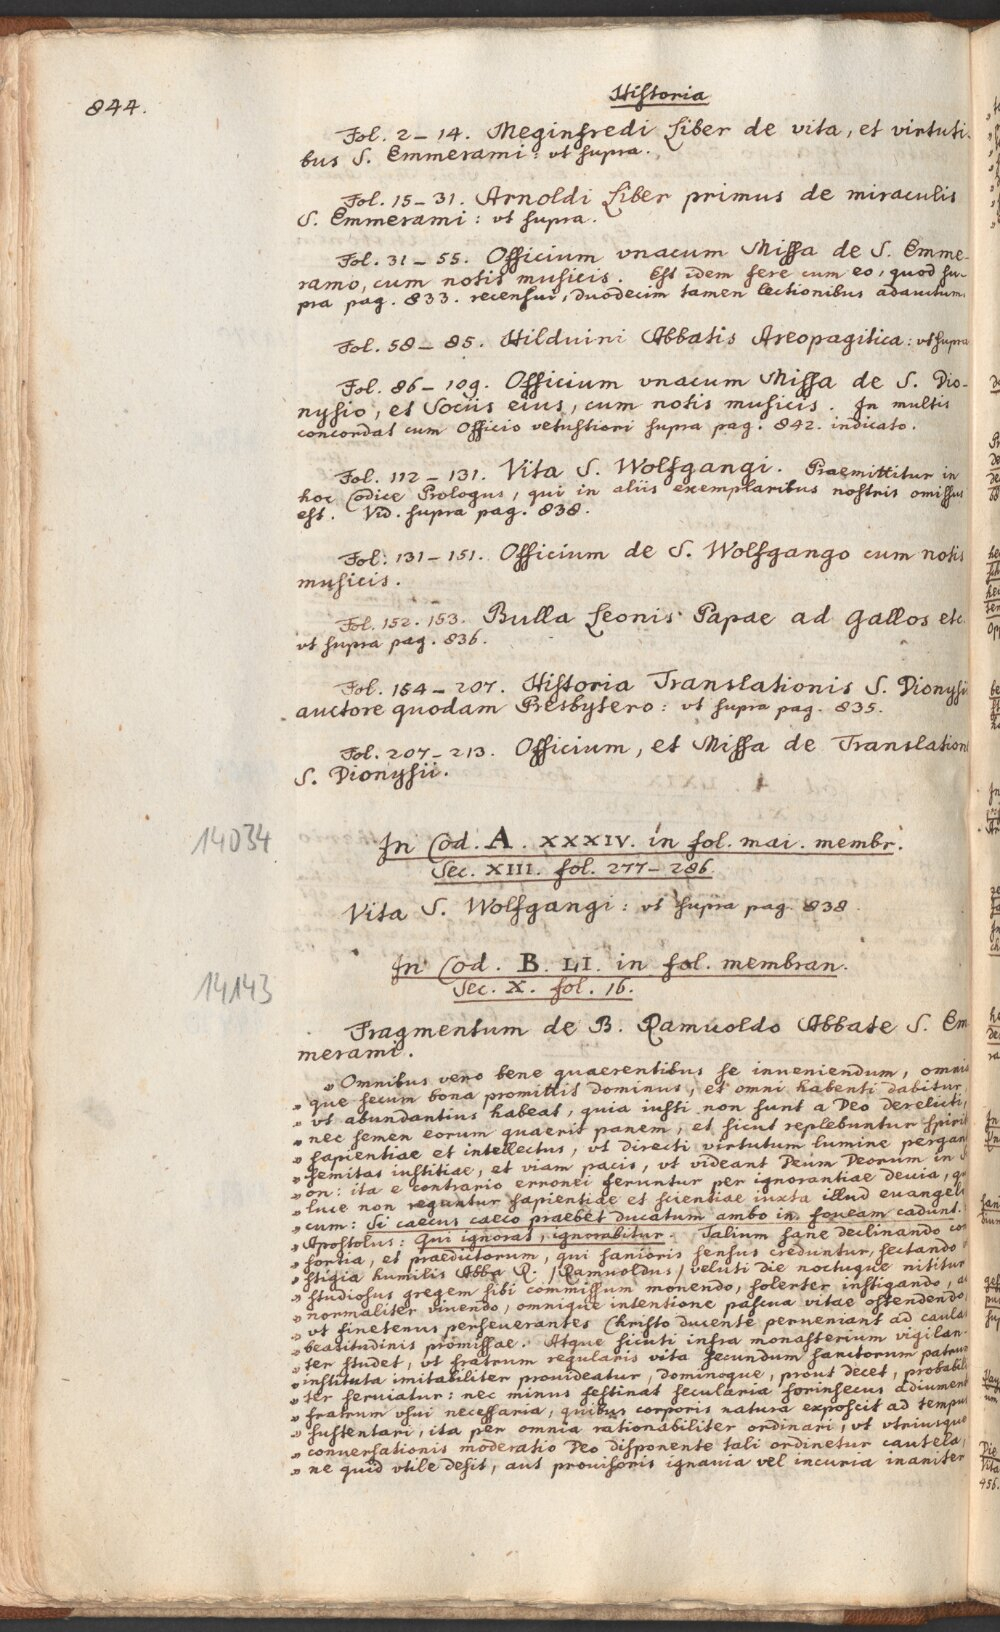 844.
Historia
Fol. 2 – 14. Meginfredi Liber de vita, et virtuti-
bus S. Emmerami: vt supra.
Fol. 15 – 31. Arnoldi Liber primus de miraculis
S. Emmerami: vt supra.
Fol. 31 – 55. Officium vnacum Missa de S. Emme-
ramo, cum notis musicis. Est idem fere cum eo, quod su-
pra pag. 833. recensui, duodecim tamen lectionibus adauctum.
Fol. 58 – 85. Hilduini Abbatis Areopagitica: vt supra
Fol. 86 – 109. Officium vnacum Missa de S. Dio-
nysio, et Sociis eius, cum notis musicis. In multis
concordat cum Officio vetustiori supra pag. 842. indicato.
Fol. 112 – 131. Vita S. Wolfgangi. Praemittitur in
hoc Codice Prologus, qui in aliis exemplaribus nostris omissus
est. Vid. supra pag. 838.
Fol. 131 – 151. Officium de S. Wolfgango cum notis
musicis.
Fol. 152. 153. Bulla Leonis Papae ad Gallos etc.
vt supra pag. 836.
Fol. 154 – 207. Historia Translationis S. Dionysii
auctore quodam Presbytero: vt supra pag. 835.
Fol. 207 – 213. Officium, et Missa de Translation
S. Dionysii.
14034
In Cod. A. XXXIV. in fol. mai. membr.
Sec. XIII. fol. 277 – 286.
Vita S. Wolfgangi: vt supra pag. 838
14143
In Cod. B. LI. in fol. membran.
Sec. X. fol. 16.
Fragmentum de B. Ramuoldo Abbate S. Em
merami.
„ Omnibus vero bene quaerentibus se inueniendum, omnia
„ que secum bona promittit dominus, et omni habenti dabitur,
„ vt abundantius habeat, quia iusti non sunt a Deo derelicti,
„ nec semen eorum quaerit panem, et sicut replebuntur spirit
„ sapientiae et intellectus, vt directi virtutum lumine pergant
„ semitas iustitiae, et viam pacis, vt videant Deum Deorum in
„ on: ita e contrario erronei feruntur per ignorantiae deuia, q
„ luce non reguntur sapientiae et scientiae iuxta illud euangeli
„ cum: Si caecus caeco praebet ducatum ambo in foueam cadunt.
„ Apostolus: Qui ignorat, ignorabitur. Talium sane declinando con
„ sortia, et praedictorum, qui sanioris sensus creduntur, sectando
„ stigia humilis Abba R. /Ramuoldus/ veluti die noctuque nititur
„ studiosus gregem sibi commissum monendo, solerter instigando, a
„ normaliter viuendo, omnique intentione pascua vitae ostendendo,
„ vt finetenus perseuerantes Christo ducente perueniant ad caulas
„ beatitudinis promissae. Atque sicuti infra monasterium vigilan-
„ ter studet, vt fratrum regularis vita secundum sanctorum patrum
„ instituta imitabiliter prouideatur, dominoque, prout decet, probabili
„ ter seruiatur: nec minus festinat secularia forinsecus adiument
„ fratrum vsui necessaria, quibus corporis natura exposcit ad tempus
„ sustentari, ita per omnia rationabiliter ordinari, vt vtriusque
„ conuersationis moderatio Deo disponente tali ordinetur cautela,
„ ne quid vtile desit, aut prouisoris ignauia vel incuria inaniter